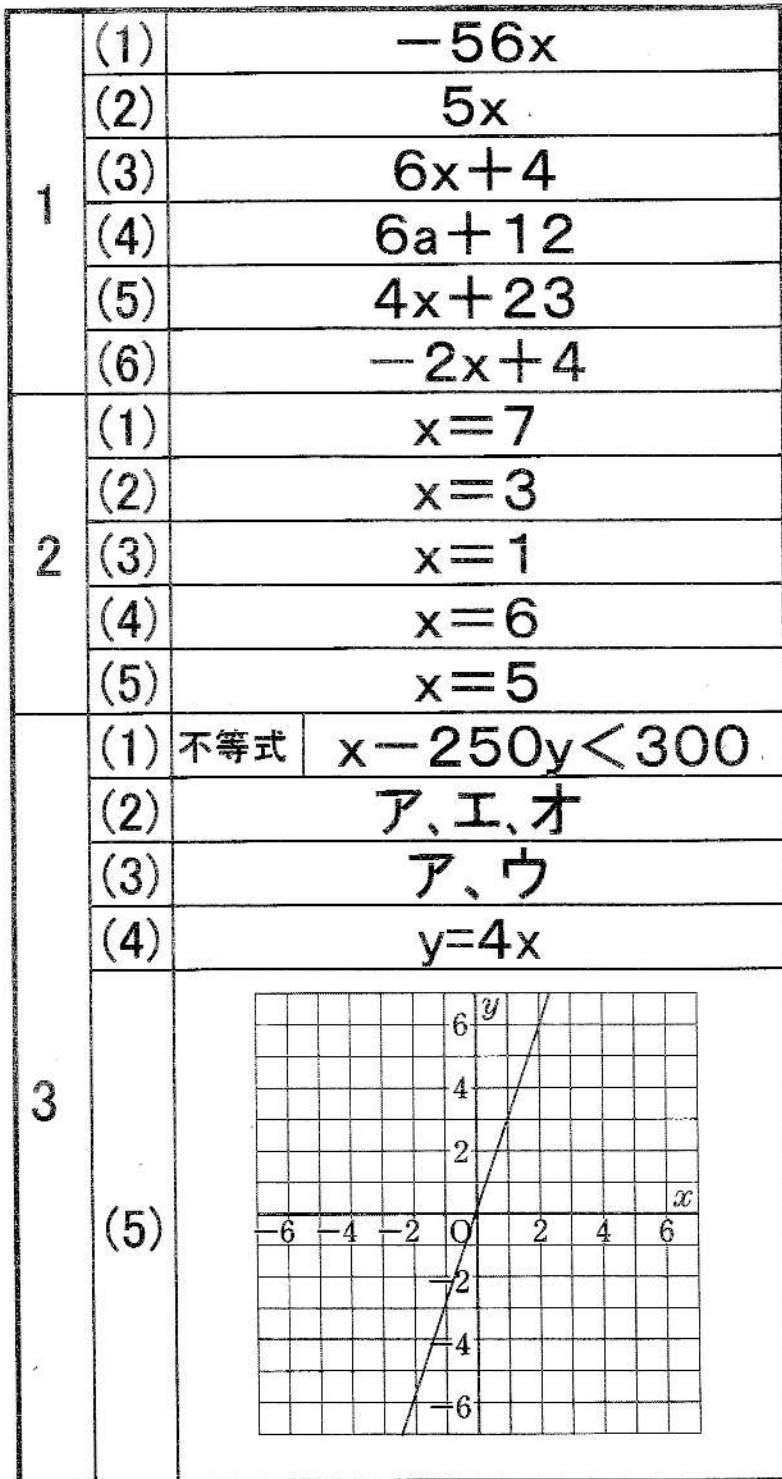 1
(1) −56x
(2) 5x
(3) 6x+4
(4) 6a+12
(5) 4x+23
(6) −2x+4
2
(1) x=7
(2) x=3
(3) x=1
(4) x=6
(5) x=5
3
(1) 不等式 x−250y<300
(2) ア、エ、オ
(3) ア、ウ
(4) y=4x
(5)
y
6
4
2
x
−6 −4 −2 O 2 4 6
−2
−4
−6